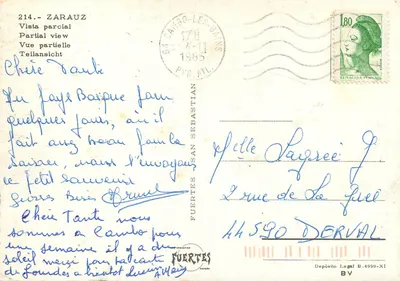 214.- ZARAUZ
Vista parcial
Partial view
Vue partielle
Teilansicht
64 CAMBO-LES-BAINS
1985
PYR ATL.
1,80
REPUBLIQUE FRANÇAISE
Chère Tante
Au Pays Basque pour
quelques jours, où il
fait un beau
nous t'envoyons
ce petit souvenir
Gros Bises
Chère Tante nous
sommes à Cambo pour
une semaine il y a du
soleil merci pour ta carte
de Lourdes à bientôt
FUERTES - SAN SEBASTIAN
FUERTES
Melle Lagrée J.
2 rue de La
44590 DERVAL
Depósito Legal B.
BV